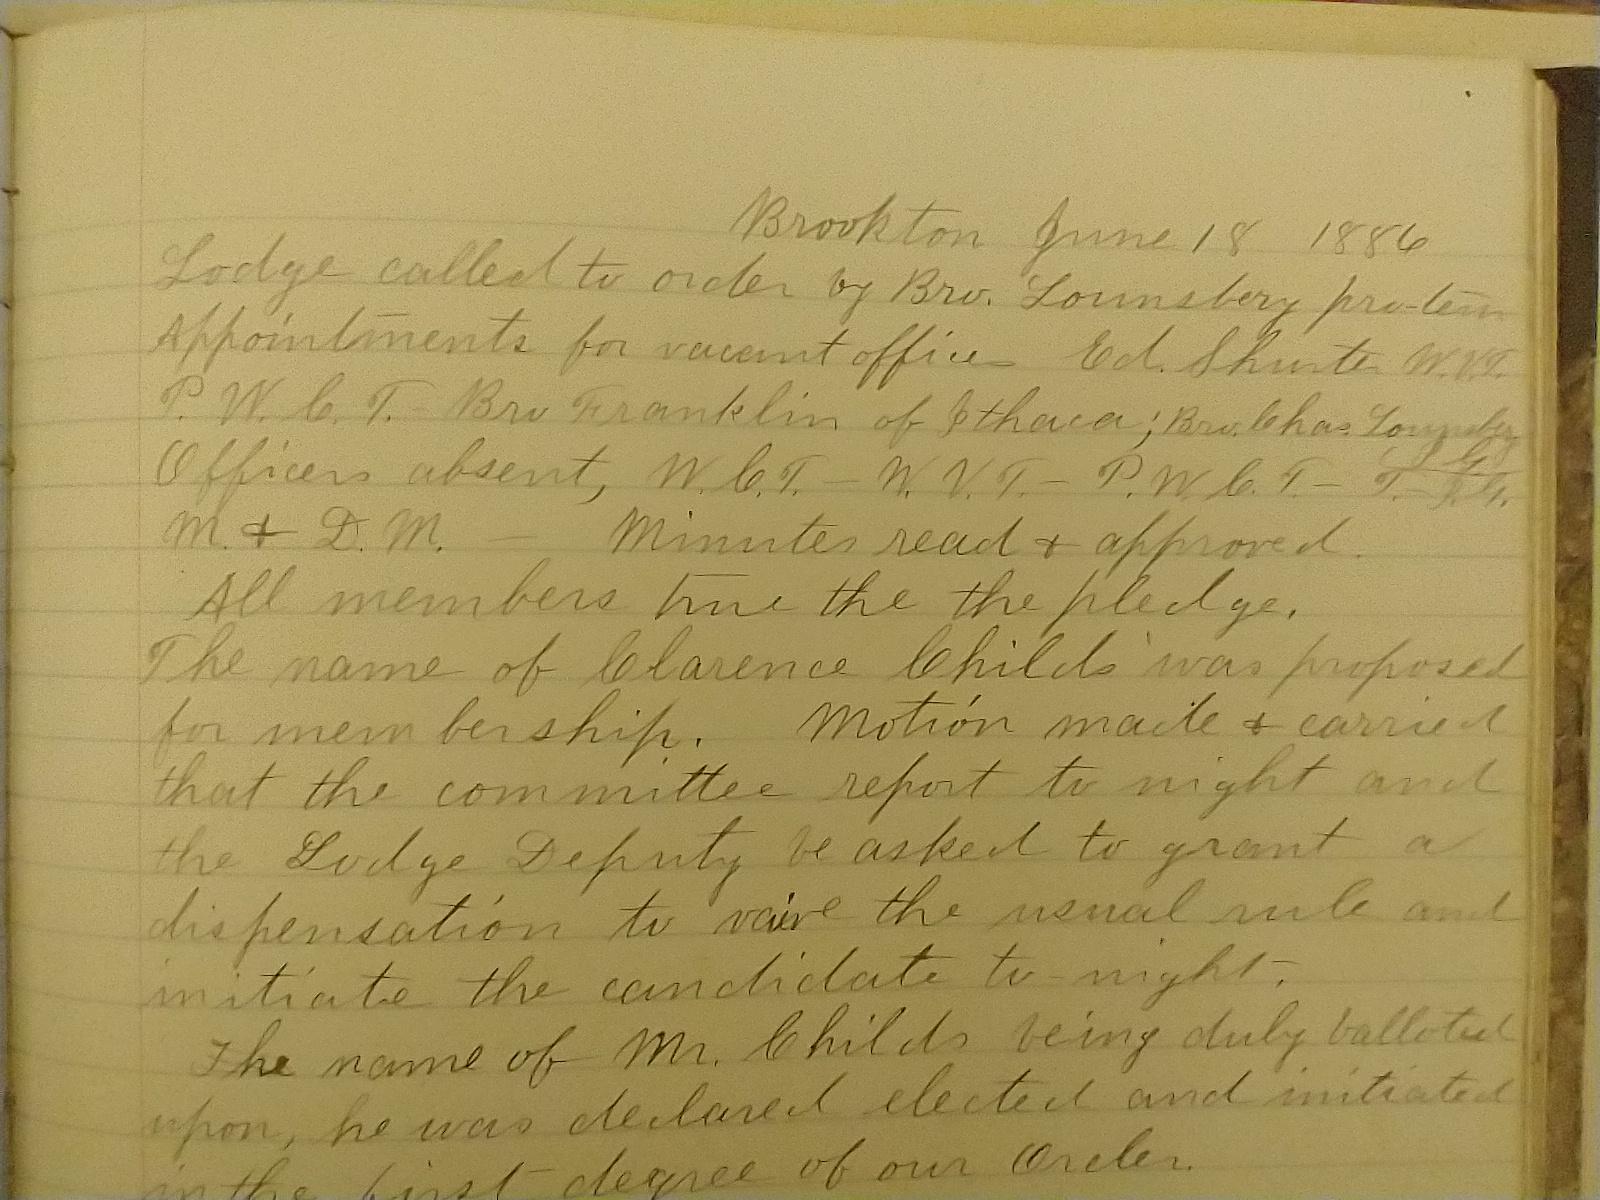 Brookton June 18 1886
Lodge called to order by Bro. Lounsbery pro-tem
Appointments for vacant offices Ed. Shurter W.V.T.
P. W. C. T. - Bro Franklin of Ithaca; Bro. Chas. Lounsbery
Officers absent, W.C.T. - W.V.T. - P.W.C.T. - T.
M. & D. M. - Minutes read & approved.
All members true the the pledge.
The name of Clarence Childs was proposed
for membership. Motion made & carried
that the committee report to night and
the Lodge Deputy be asked to grant a
dispensation to vaive the usual rule and
initiate the candidate to-night.
The name of Mr. Childs being duly balloted
upon, he was declared elected and initiated
in the first degree of our Order.